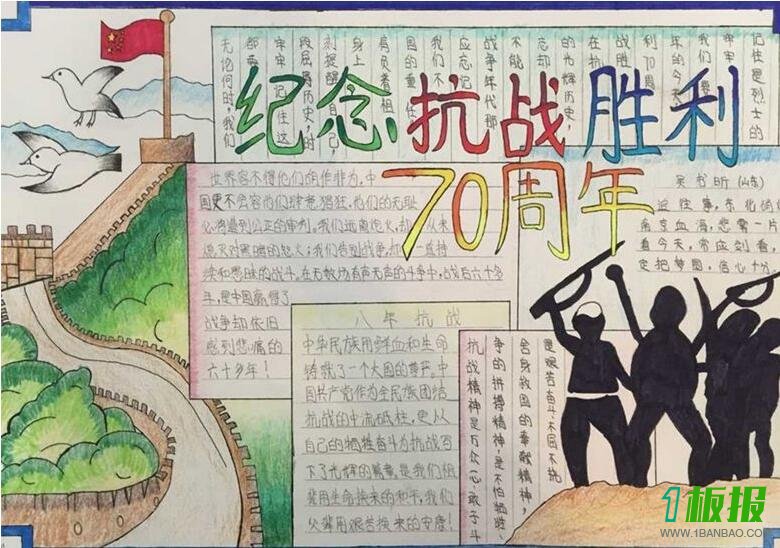 记住是烈士的
牢牢
我们要
年的今天
利70周
战胜
在抗
的光辉历史，
忘却
不能
战争年代那
应忘记
我们不
国的重任
肩负着祖
身上
刻提醒自己，
段屈辱历史，时
牢牢记住这
都要
无论何时，我们
纪念抗战胜利
70周年
世界容不得他们胡作非为，中
国更不会容他们肆意猖狂，他们的无耻
必将遭到公正的审判。我们远离炮火，却从来
熄灭对黑暗的怒火；我们告别战争，却一直持
续和愚昧的战斗。在无数场有声无声的斗争中，战后六十多
年，是中国赢得了
战争却依旧
感到悲痛的
六十多年！
吴书昕(山东)
往事，东北沦
南京血海，悲雪一片
看今天，常应剑看
定把梦圆，信心十分
八年抗战
中华民族用鲜血和生命
铸就了一个大国的尊严，中
国共产党作为全民族团结
抗战的中流砥柱，更从
自己的牺牲奋斗为抗战写
下了光辉的篇章，是我们祖
辈用生命换来的和平，我们
父辈用艰苦换来的安康！
是艰苦奋斗、不屈不挠
舍身救国的奉献精神，
争的拼搏精神，是不怕牺牲、
抗战精神是万众一心，敢于斗
1板报
WWW.1BANBAO.COM